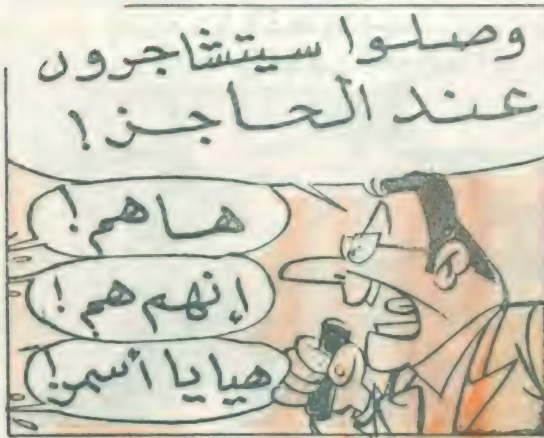 وصلوا سيتشاجرون
عند الحاجز!
ها هم!
إنهم هم!
هيا يا أسمر!